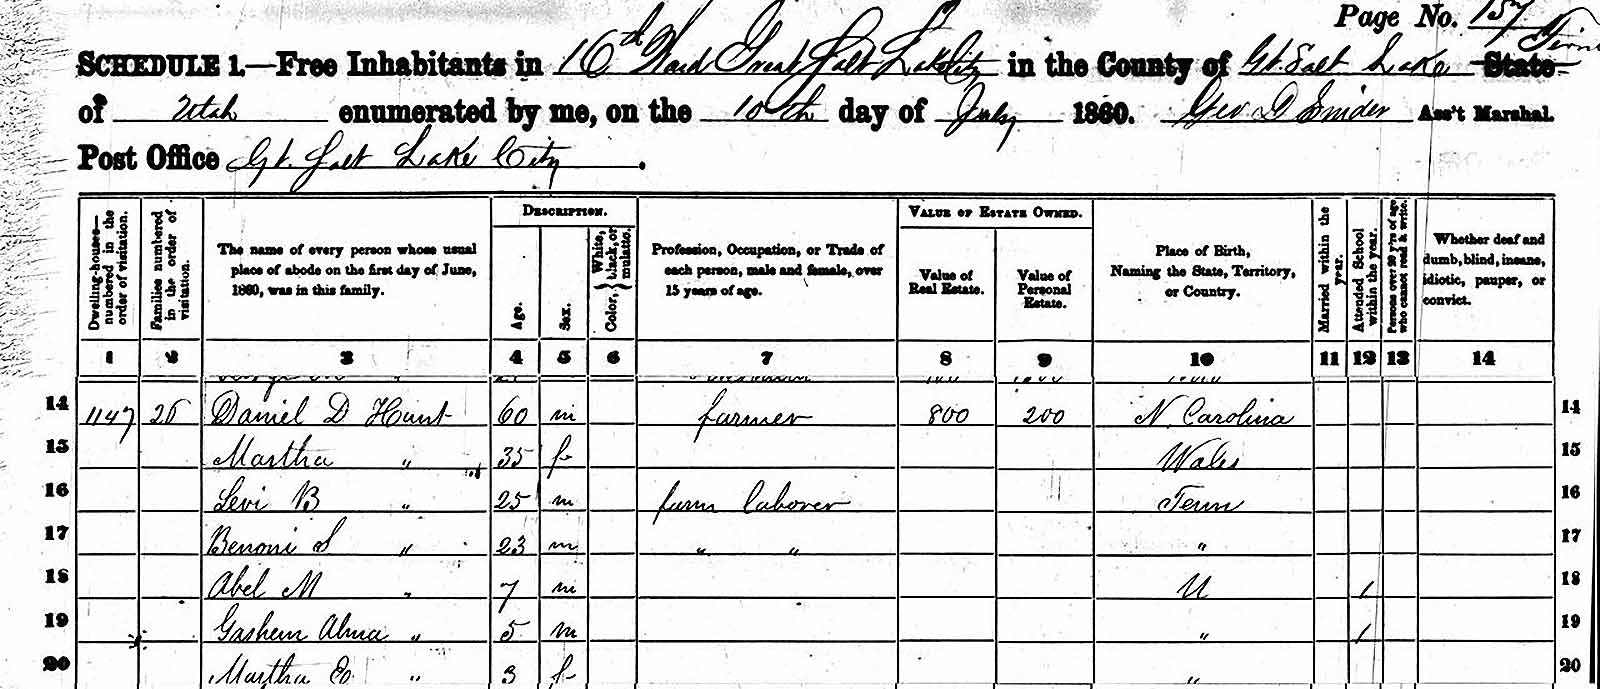 Page No. 157
SCHEDULE 1.—Free Inhabitants in 16th Ward Great Salt Lake City in the County of Gt. Salt Lake State
of Utah enumerated by me, on the 10th day of July 1860. Geo D Snider Ass't Marshal.
Post Office Gt. Salt Lake City.
Dwelling-houses—numbered in the order of visitation.
Families numbered in the order of visitation.
The name of every person whose usual place of abode on the first day of June, 1860, was in this family.
DESCRIPTION.
Age.
Sex.
Color, { White, black, or mulatto.
Profession, Occupation, or Trade of each person, male and female, over 15 years of age.
VALUE OF ESTATE OWNED.
Value of Real Estate.
Value of Personal Estate.
Place of Birth, Naming the State, Territory, or Country.
Married within the year.
Attended School within the year.
Persons over 20 y'rs of age who cannot read & write.
Whether deaf and dumb, blind, insane, idiotic, pauper, or convict.
1 2 3 4 5 6 7 8 9 10 11 12 13 14
14 1147 Daniel D Hunt 60 m farmer 800 200 N. Carolina 14
15 Martha " 35 f Wales 15
16 Levi B " 25 m farm laborer Tenn 16
17 Benoni S " 23 m " " " 17
18 Abel M " 7 m U / 18
19 Gashem Alma " 5 m " / 19
20 Martha E " 3 f " 20